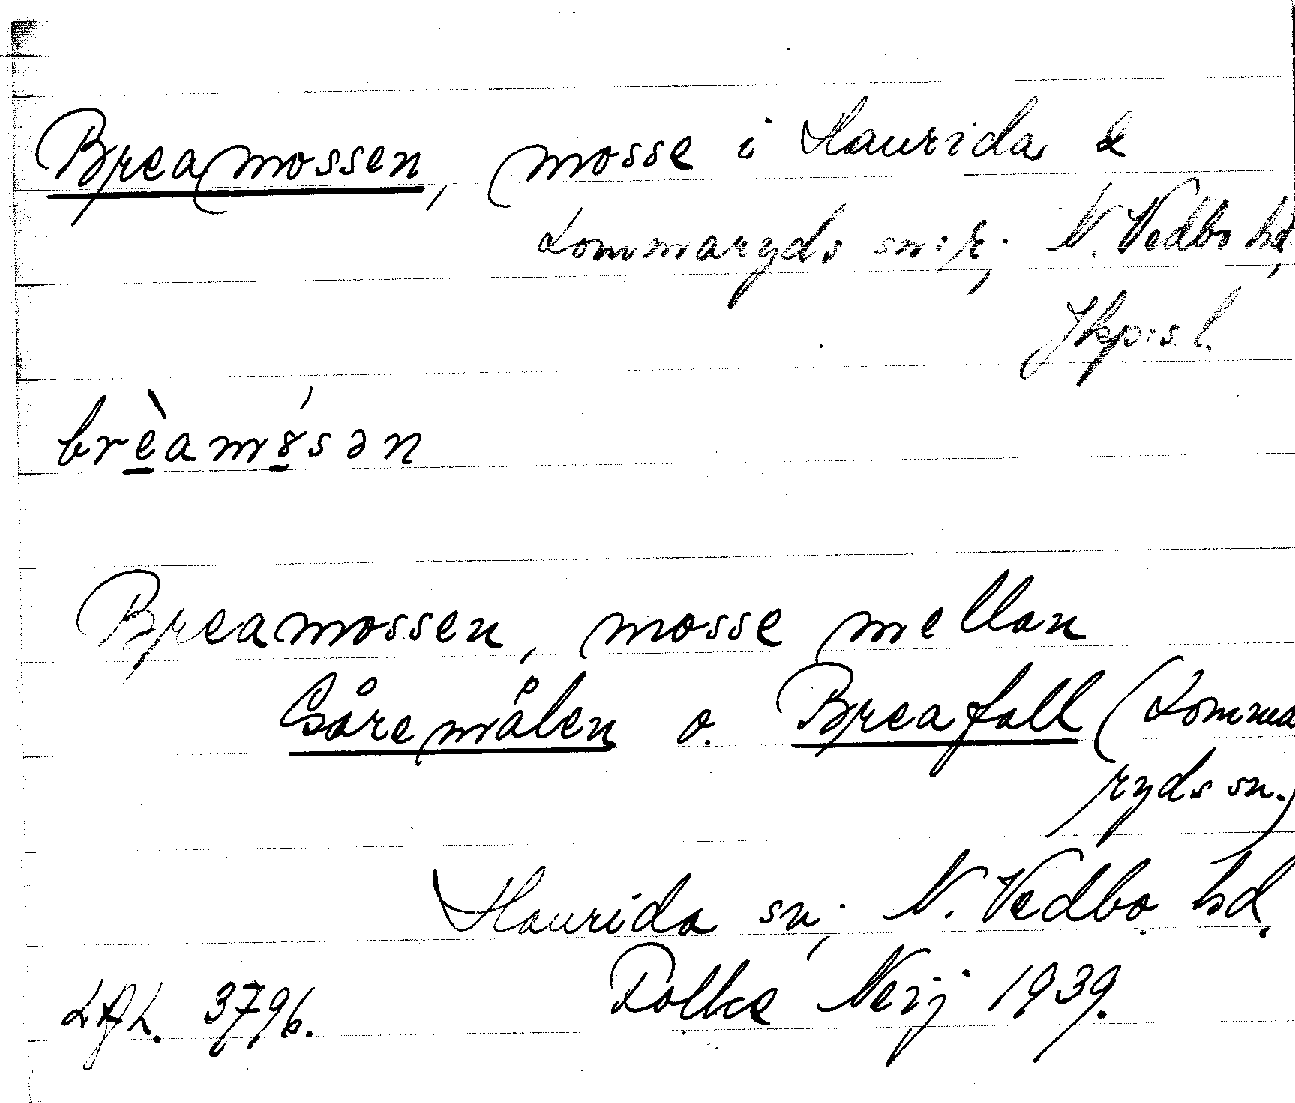 Breamossen, mosse i Haurida &
Lommaryds sn:r; N. Vedbo hd,
Jkp:s l.
brèamósən
Breamossen, mosse mellan
Gåremålen o. Breafall (Lomma
ryds sn.)
Haurida sn; N. Vedbo hd.
LAL. 3796. 1939.